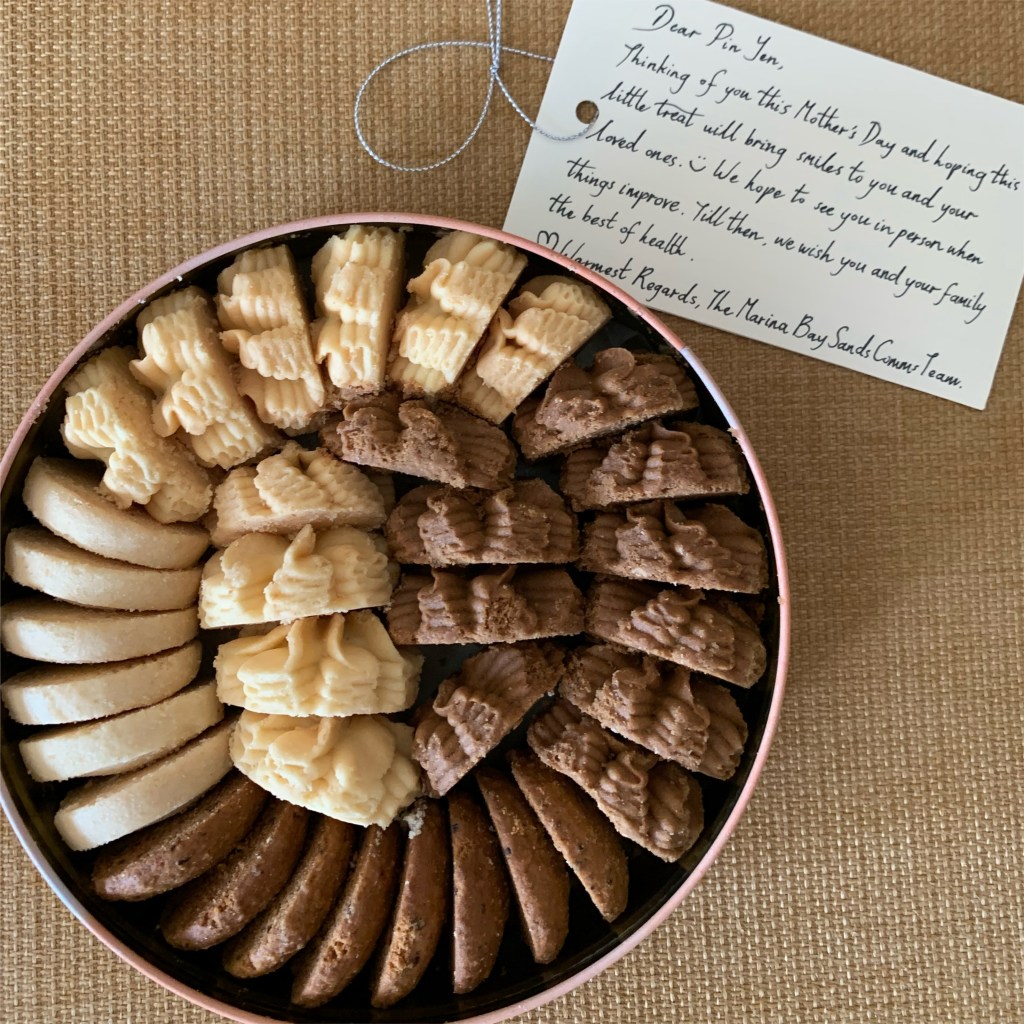 Dear Pin Yen,
Thinking of you this Mother's Day and hoping this
little treat will bring smiles to you and your
loved ones. :) We hope to see you in person when
things improve. Till then, we wish you and your family
the best of health.
♡Warmest Regards, The Marina Bay Sands Comms Team.